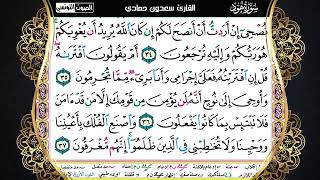 القارئ سعدون حمادي
نُصْحِىٓ إِنْ أَرَدتُّ أَنْ أَنصَحَ لَكُمْ إِن كَانَ ٱللَّهُ يُرِيدُ أَن يُغْوِيَكُمْ
هُوَ رَبُّكُمْ وَإِلَيْهِ تُرْجَعُونَ ٣٤ أَمْ يَقُولُونَ ٱفْتَرَىٰهُ
قُلْ إِنِ ٱفْتَرَيْتُهُۥ فَعَلَىَّ إِجْرَامِى وَأَنَا۠ بَرِىٓءٌ مِّمَّا تُجْرِمُونَ ٣٥
وَأُوحِىَ إِلَىٰ نُوحٍ أَنَّهُۥ لَن يُؤْمِنَ مِن قَوْمِكَ إِلَّا مَن قَدْ ءَامَنَ
فَلَا تَبْتَئِسْ بِمَا كَانُوا۟ يَفْعَلُونَ ٣٦ وَٱصْنَعِ ٱلْفُلْكَ بِأَعْيُنِنَا
وَوَحْيِنَا وَلَا تُخَٰطِبْنِى فِى ٱلَّذِينَ ظَلَمُوٓا۟ إِنَّهُم مُّغْرَقُونَ ٣٧